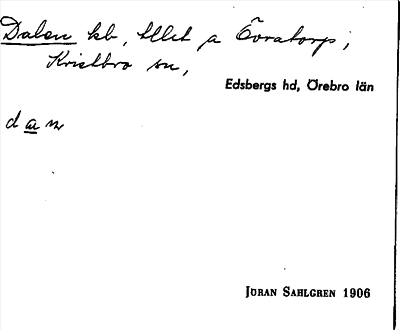 Dalen kb, tllet p Övratorp;
Knistbro sn,
Edsbergs hd, Örebro län
dan
JÖRAN SAHLGREN 1906